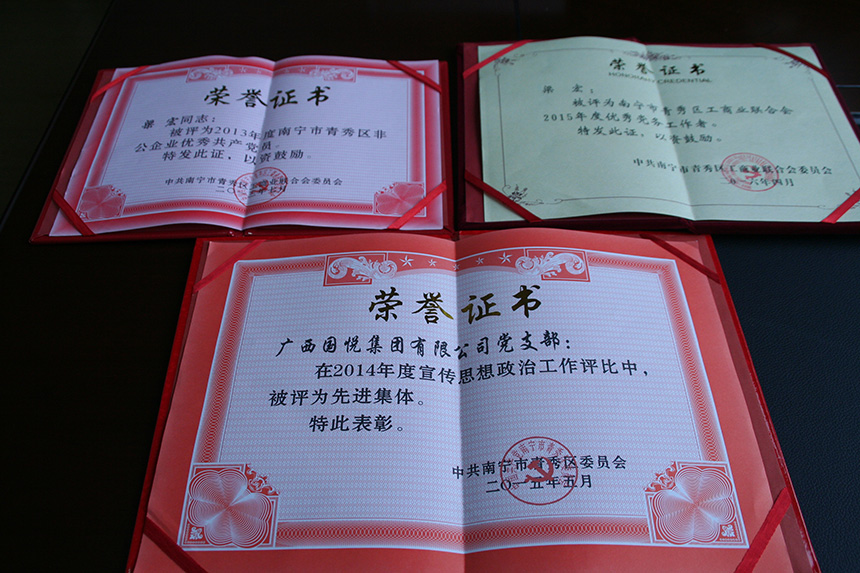 荣誉证书
梁宏同志：
被评为2013年度南宁市青秀区非
公企业优秀共产党员。
特发此证，以资鼓励。
荣誉证书
HONORARY CREDENTIAL
梁宏：
被评为南宁市青秀区工商业联合会
2015年度优秀党务工作者。
特发此证，以资鼓励。
中共南宁市青秀区工商业联合会委员会
荣誉证书
广西国悦集团有限公司党支部：
在2014年度宣传思想政治工作评比中，
被评为先进集体。
特此表彰。
中共南宁市青秀区委员会
二〇一五年五月